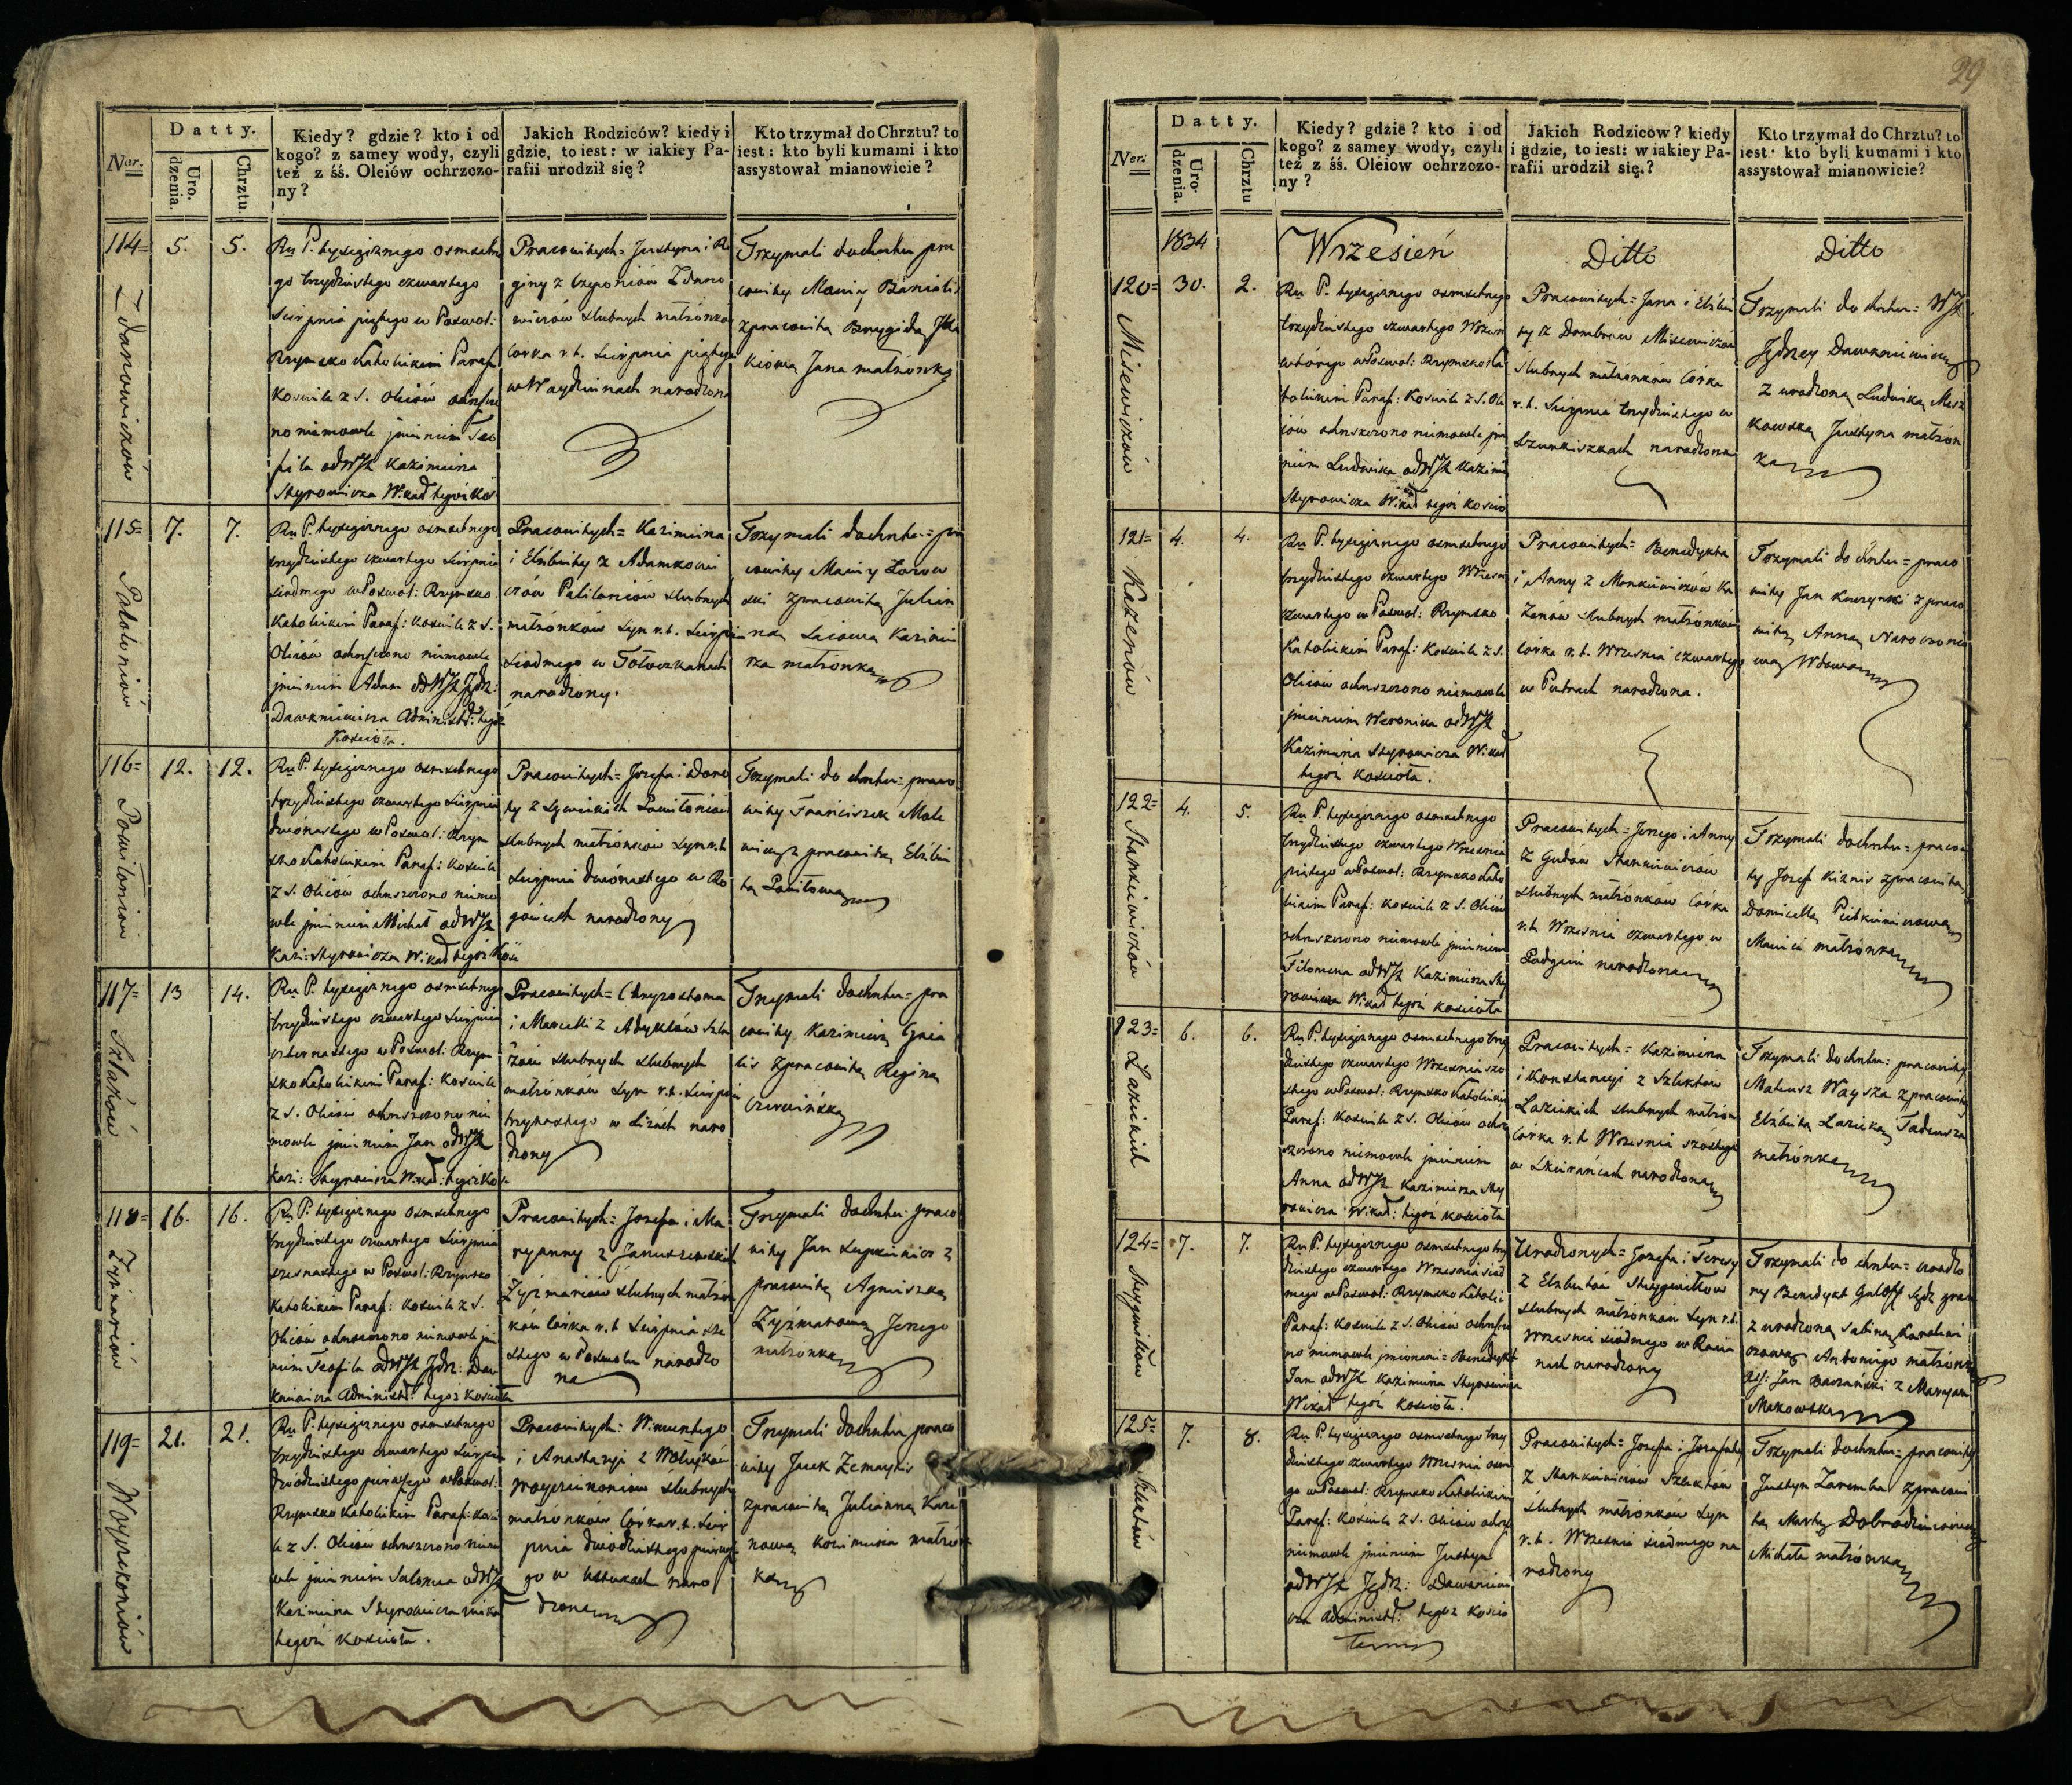 Datty.
Ner.
Uro.
dzenia.
Chrztu.
Kiedy? gdzie? kto i od
kogo? z samey wody, czyli
też z śś. Oleiów ochrzczo-
ny?
Jakich Rodziców? kiedy i
gdzie, to iest: w iakiey Pa-
rafii urodził się?
Kto trzymał do Chrztu? to
iest: kto byli kumami i kto
assystował mianowicie?
114=
Zdanowiczów
5.
5.
Ru P. tysiącznego osmsetne
go trzydziestego czwartego
Sierpnia piątego w Poswol:
Rzymsko Katolickim Paraf:
Kościele z S. Oleiów ochrzczo
no niemowle jmieniem Teo
fila od WJX Kazimierza
Skyrowicza Wikar tegoż Koś:
Pracowitych= Justyna i Re
giny z Czyponiów Zdano
wiczów slubnych małżonków
Corka r.t. Sierpnia piątego
w Wayzdzinach narodzona
Trzymali do chrztu pra
cowity Maciey Banialis
z pracowitą Brygidą
Jana małżonką
115=
Patoloniów
7.
7.
Ru P. tysiącznego osmsetnego
trzydziestego czwartego Sierpnia
siodmego w Poswol: Rzymsko
Katolickim Paraf: Kościele z S.
Oleiów ochrzczono niemowle
jmieniem Adam od WJX Jędr:
Dawkniewicza Administr: tegoż
Kościoła.
Pracowitych= Kazimierza
i Elżbiety z Adamkowi
czów Patiloniów slubnych
małżonków Syn r.t. Sierpnia
siodmego w Tołoczkanach
narodzony.
Trzymali do chrztu= pra
cowity Maciey
z pracowitą Julian
ną Kazimie
rza małżonką
116=
Powiloniów
12.
12.
Ru P. tysiącznego osmsetnego
trzydziestego czwartego Sierpnia
dwónastego w Poswol: Rzym
sko Katolickim Paraf: Kościele
z S. Oleiów ochrzczono niemo
wle jmieniem Michał od WJX
Kazi: Skyrowicza Wikar tegoż Koś
Pracowitych= Jozefa i Doro
ty z Powiłoniów
slubnych małżonków Syn r.t.
Sierpnia dwónastego w Ro
gówcach narodzony
Trzymali do chrztu= praco
wity Franciszek Male
wicz z pracowitą Elżbie
tą Powiłową
117=
Szlażów
13
14.
Ru P. tysiącznego osmsetnego
trzydziestego czwartego Sierpnia
czternastego w Poswol: Rzym
sko Katolickim Paraf: Kościele
z S. Oleiów ochrzczono nie
mowle jmieniem Jan od WJX
Kazi: Skyrowicza Wikar: tegoż Koś
Pracowitych= Chryzostoma
i Marcelli z Adyklów Szla
żów slubnych slubnych
małżonków Syn r.t. Sierpnia
trzynastego w Liżach naro
dzony
Trzymali do chrztu= pra
cowity Kazimierz Gaia
lis z pracowitą Reginą
Czerwińską
118=
Zyżmariów
16.
16.
Ru P. tysiącznego osmsetnego
trzydziestego czwartego Sierpnia
szesnastego w Poswol: Rzymsko
Katolickim Paraf: Kościele z S.
Oleiów ochrzczono niemowle jmie
niem Teofila od WJX Jędr: Daw
kniewicza Administr: tegoż Kościoła
Pracowitych= Jozefa i Ma
ryanny z Januszewskich
Zyżmariów slubnych małżon
ków Córka r.t. Sierpnia sze
stego w Poswolu narodzo
na
Trzymali do chrztu praco
wity Jan z
pracowitą Agnieszką
Zyżmarową Jerzego
małżonką
119=
Woyciekoniów
21.
21.
Ru P. tysiącznego osmsetnego
trzydziestego czwartego Sierpnia
dwódziestego pierwszego w Poswol:
Rzymsko Katolickim Paraf: Kości
le z S. Oleiów ochrzczono niemo
wle jmieniem Salomea od WJX
Kazimierza Skyrowicza Wikar
tegoż kościoła.
Pracowitych: Wincentego
i Anastazyi z
Woyciekoniów slubnych
małżonków Córka r.t. Sier
pnia dwódziestego pierwsze
go w naro
dzona
Trzymali do chrztu praco
wity Jacek Zemaytis
z pracowitą Julianną Kare
nową Kazimierza małżon
ką
29
Datty.
Ner.
Uro-
dzenia.
Chrztu
Kiedy? gdzie? kto i od
kogo? z samey wody, czyli
też z śś. Oleiow ochrzczo-
ny?
Jakich Rodzicow? kiedy
i gdzie, to iest: w iakiey Pa-
rafii urodził się.?
Kto trzymał do Chrztu? to
iest: kto byli kumami i kto
assystował mianowicie?
1834
Wrzesień
Ditto
Ditto
120=
Misiewiczów
30.
2.
Ru P. tysiącznego osmsetnego
trzydziestego czwartego Wrześn
wtórego w Poswol: Rzymsko Ka
tolickim Paraf: Kościele z S. Ole
iów ochrzczono niemowle jmie
niem Ludwika od WJX Kazimi
Skyrowicza Wikar tegoż Kościo
Pracowitych= Jana i Elżbie
ty z Dombrów Misiewiczów
slubnych małżonków Córka
r.t. Sierpnia trzydziestego w
Szumkiszkach narodzona
Trzymali do chrztu= WJX
Jędrzey Dawkniewicz
z urodzoną Ludwiką Mesz
kowską Justyna małżon
ką
121=
Kazenów
4.
4.
Ru P. tysiącznego osmsetnego
trzydziestego czwartego Wrześn
czwartego w Poswol: Rzymsko
Katolickim Paraf: Kościele z S.
Oleiów ochrzczono niemowle
jmieniem Weronika od WJX
Kazimierza Skyrowicza Wikar
tegoż kościoła.
Pracowitych= Benedykta
i Anny z Monkiewiczów Ka
żenów slubnych małżonków
Córka r.t. Wrześnią czwartego
w Putrach narodzona.
Trzymali do chrztu= praco
wity Jan Kuczynski z praco
witą Anną
wą Wdową
122=
Stankiewiczów
4.
5.
Ru P. tysiącznego osmsetnego
trzydziestego czwartego Wrześnią
piątego w Poswol: Rzymsko Kato
lickim Paraf: Kościele z S. Oleiów
ochrzczono niemowle jmieniem
Filomena od WJX Kazimierza Sky
rowicza Wikar tegoż kościoła
Pracowitych= Jerzego i Anny
z Gudów Stankiewiczów
slubnych małżonków Córka
r.t. Wrześnią czwartego w
narodzona
Trzymali do chrztu= pracowi
ty Jozef Kiznis z pracowitą
Domicellą Pietkiewiczową
Macieia małżonką
123=
Lasickich
6.
6.
Ru P. tysiącznego osmsetnego trzy
dziestego czwartego Wrześnią szo
stego w Poswol: Rzymsko Katolickim
Paraf: Kościele z S. Oleiów ochrz
czono niemowle jmieniem
Anna od WJX Kazimierza Sky
rowicza Wikar: tegoż kościoła
Pracowitych= Kazimierza
i Konstancyi z Szlektów
Lasickich slubnych małżon
Córka r.t. Wrześnią szóstego
w narodzona
Trzymali do chrztu= pracowity
Mateusz Wayszla z pracowitą
Elżbietą Lasicką Tadeusza
małżonką
124=
Skrzygwiłłów
7.
7.
Ru P. tysiącznego osmsetnego trzy
dziestego czwartego Wrześnią siod
mego w Poswol: Rzymsko Katolic
Paraf: Kościele z S. Oleiów ochrzczo
no niemowle jmionami= Benedykt
Jan od WJX Kazimierza Skyrowicza
Wikar tegoż kościoła.
Urodzonych= Jozefa i Teresy
z Elzbutów
slubnych małżonków Syn r.t.
Wrześnią siódmego w
nach narodzony
Trzymali do chrztu= urodzo
ny Benedykt
z urodzoną Sabiną Karolewi
czową Antoniego małżonką
Ass: Jan z Maryam
Makowską
125=
Szlektów
7.
8.
Ru P. tysiącznego osmsetnego trzy
dziestego czwartego Wrześnią osm
go w Poswol: Rzymsko Katolickim
Paraf: Kościele z S. Oleiów ochrz
niemowle jmieniem Justyn
od WJX Jędr: Dawkniewi
cza Administr: tegoż Kościo
ła
Pracowitych= Jozefa i Jozefaty
z Stankiewiczów Szlektów
slubnych małżonków Syn
r.t. Wrześnią siódmego na
rodzony
Trzymali do chrztu= pracowity
Justyn Zaremba z pracowi
tą Martą Dobrodziewiczową
Michała małżonką